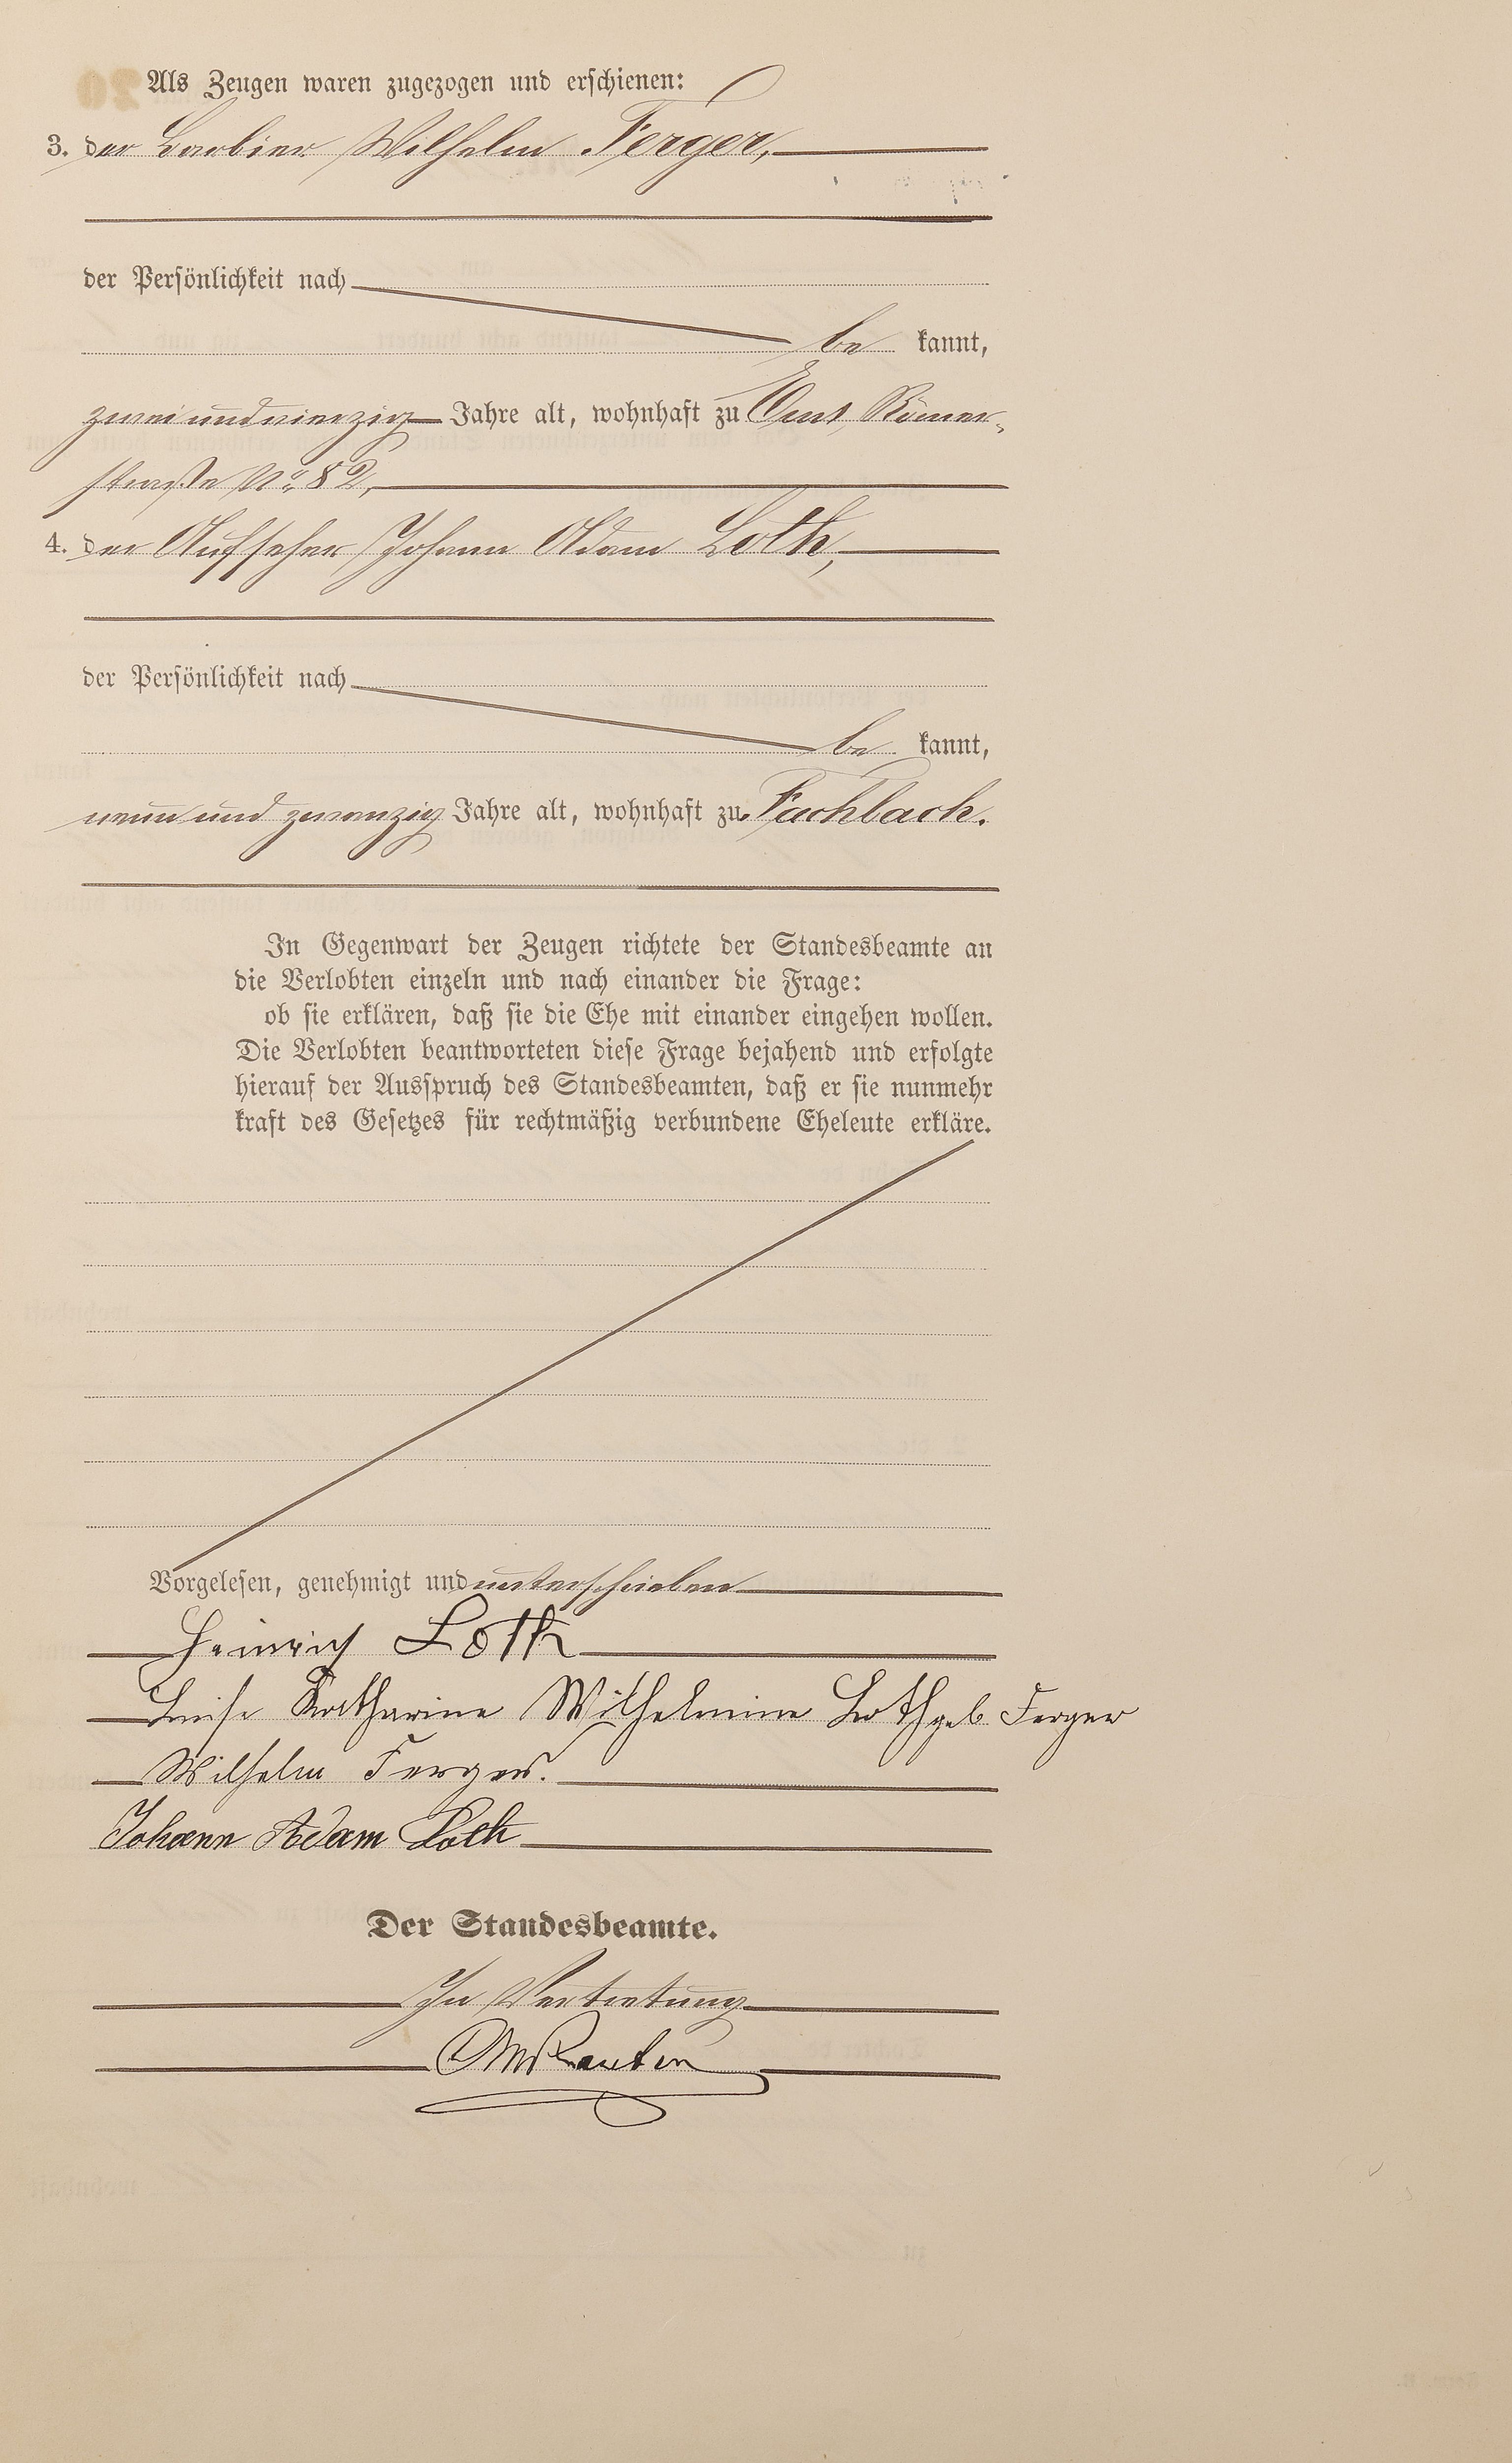 Als Zeugen waren zugezogen und erschienen:
3. der Barbier Wilhelm Ferger,
der Persönlichkeit nach
be kannt,
zweiundvierzig Jahre alt, wohnhaft zu Ems, Römer-
straße No 82,
4. der Aufseher Johann Adam Loth,
der Persönlichkeit nach
be kannt,
neun und zwanzig Jahre alt, wohnhaft zu Fachbach.
In Gegenwart der Zeugen richtete der Standesbeamte an
die Verlobten einzeln und nach einander die Frage:
ob sie erklären, daß sie die Ehe mit einander eingehen wollen.
Die Verlobten beantworteten diese Frage bejahend und erfolgte
hierauf der Ausspruch des Standesbeamten, daß er sie nunmehr
kraft des Gesetzes für rechtmäßig verbundene Eheleute erkläre.
Vorgelesen, genehmigt und unterschrieben
Heinrich Loth
Luise Katharine Wilhelmine Loth geb. Ferger
Wilhelm Ferger.
Johann Adam Loth
Der Standesbeamte.
In Vertretung